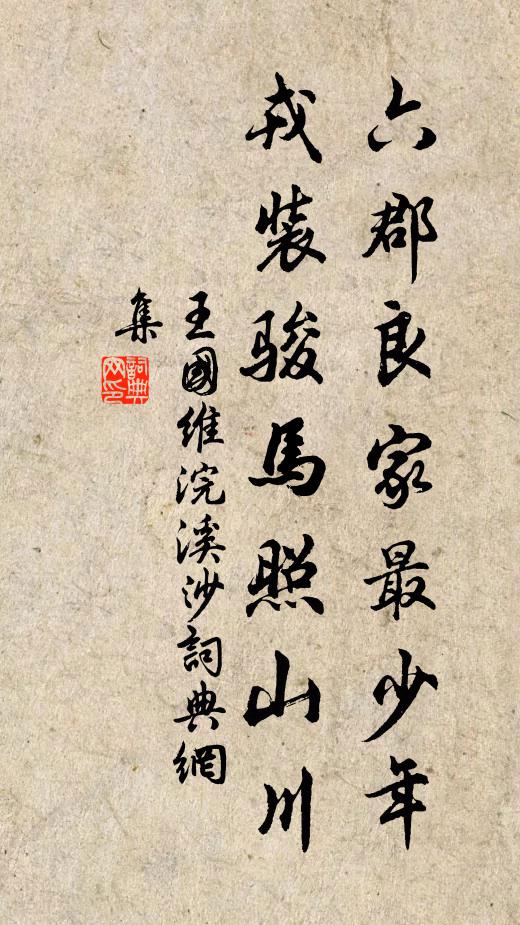 六郡良家最少年
戎裝駿馬照山川
王國維浣溪沙詞典網
集
詞典
網印